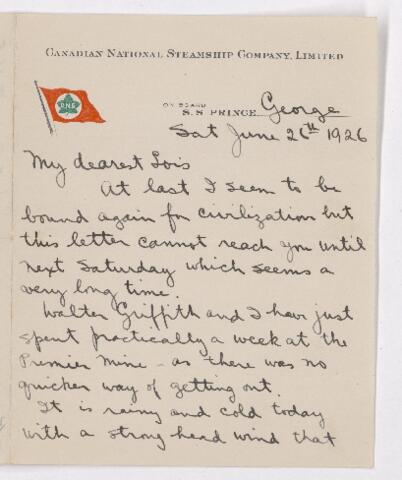 CANADIAN NATIONAL STEAMSHIP COMPANY, LIMITED
C.N.S.
ON BOARD
S.S. PRINCE George
Sat June 26th 1926
My dearest Lois
At last I seem to be
bound again for civilization but
this letter cannot reach you until
next Saturday which seems a
very long time.
Walter Griffith and I have just
spent practically a week at the
Premier Mine - as there was no
quicker way of getting out.
It is rainy and cold today
with a strong head wind that